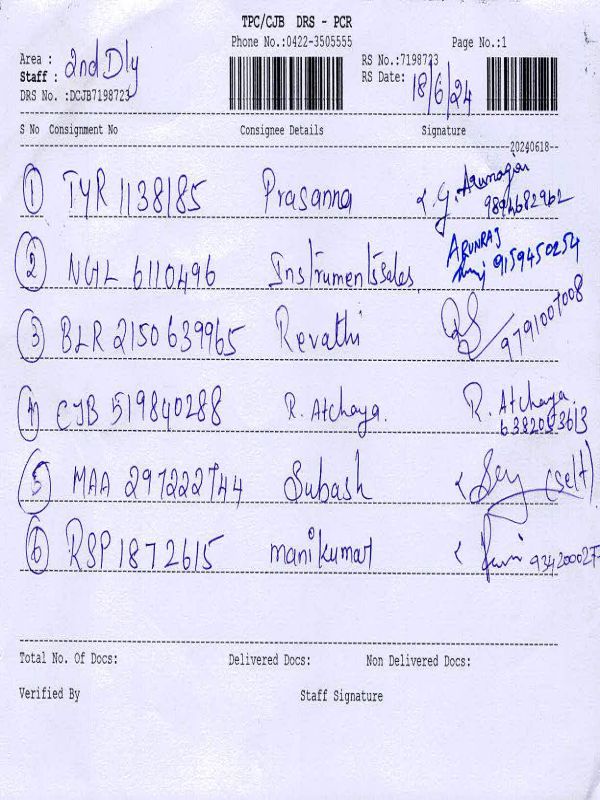 TPC/CJB DRS - PCR
Phone No.:0422-3505555 Page No.:1
Area : 2nd Dly RS No.:7198723
Staff : RS Date: 18/6/24
DRS No. :DCJB7198723
S No Consignment No Consignee Details Signature
20240618
1 TYR 1138185 Prasanna G. Arunagiri
9894682962
2 NGL 6110496 Instrumentsales ARUNRAJ
9159450254
3 BLR 2150639965 Revathi 9791007008
4 CJB 519840288 R. Atchaya. R. Atchaya.
5 MAA 297222744 Subash (self)
6 RSP 1872615 manikumar
Total No. Of Docs: Delivered Docs: Non Delivered Docs:
Verified By Staff Signature